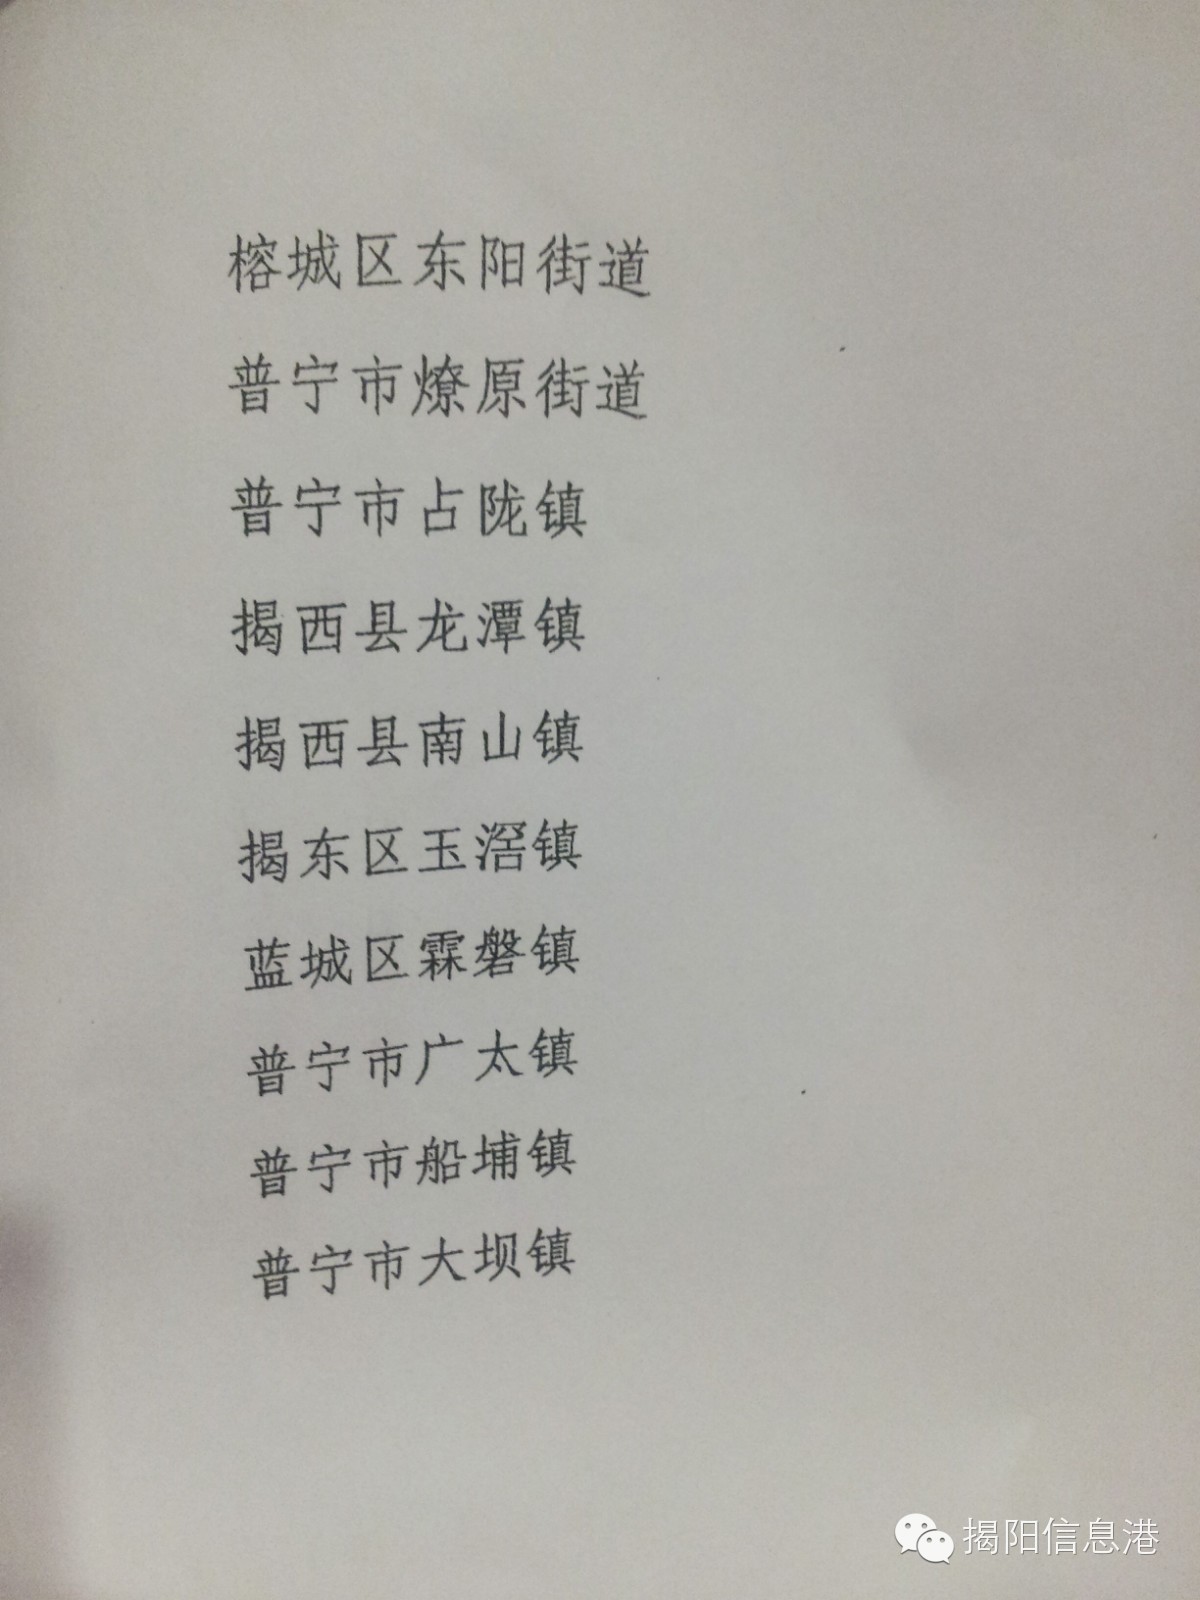 榕城区东阳街道
普宁市燎原街道
普宁市占陇镇
揭西县龙潭镇
揭西县南山镇
揭东区玉滘镇
蓝城区霖磐镇
普宁市广太镇
普宁市船埔镇
普宁市大坝镇
揭阳信息港